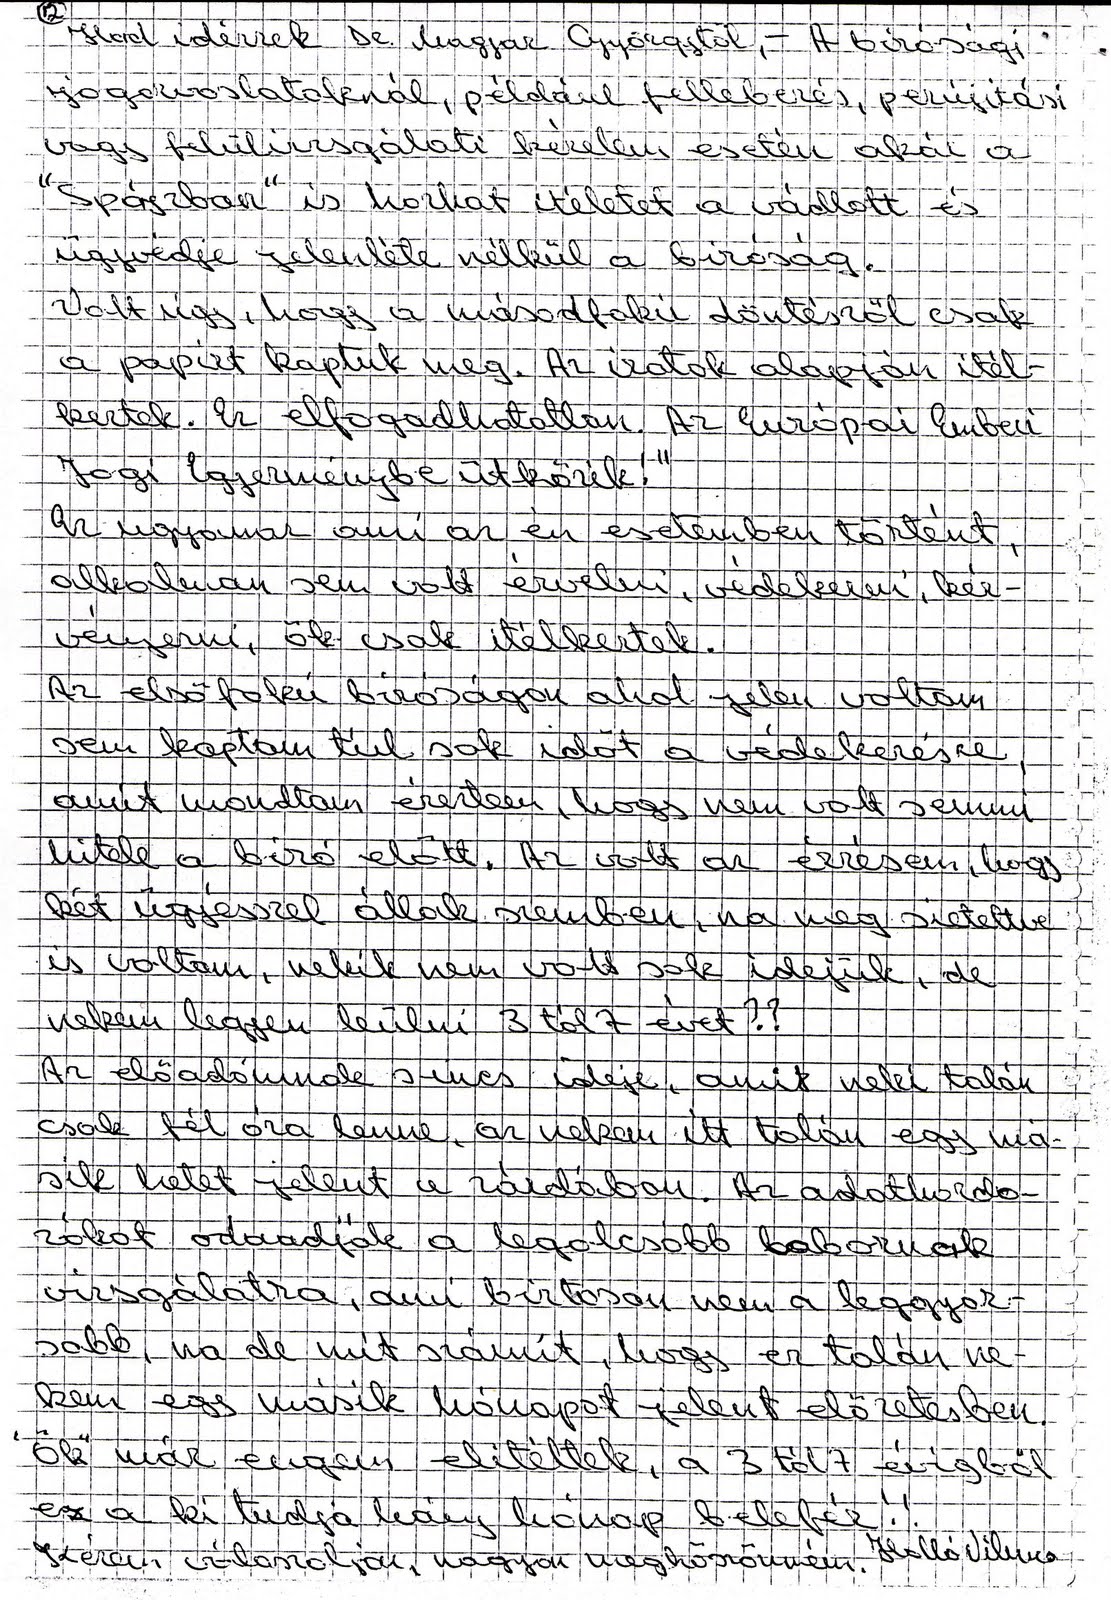 12
Had idézzek Dr. Magyar Györgytől, – A bírósági
jogorvoslatoknál, például fellebezés, perújítási
vagy felülvizsgálati kérelem esetén akár a
"Spájzban" is hozhat ítéletet a vádlott és
ügyvédje jelenléte nélkül a bíróság.
Volt úgy, hogy a másodfokú döntésről csak
a papírt kaptuk meg. Az iratok alapján ítél-
keztek. Ez elfogadhatatlan. Az Európai Emberi
Jogi Egyezménybe ütközik!"
Ez ugyanaz ami az én esetemben történt,
alkalmam sem volt érvelni, védekezni, kér-
vényezni, ők csak ítélkeztek.
Az elsőfokú bíróságon ahol jelen voltam
sem kaptam túl sok időt a védekezésre,
amit mondtam éreztem, hogy nem volt semmi
hitele a bíró előtt. Az volt az érzésem, hogy
két ügyésszel állok szemben, na meg sietettve
is voltam, nekik nem volt sok idejük, de
nekem legyen leülni 3 tól 7 évet??
Az előadómnak sincs ideje, amit neki talán
csak fél óra lenne, az nekem itt talán egy má-
sik hetet jelent a zárdában. Az adathordo-
zókat odaadják a legolcsóbb labornak
vizsgálatra, ami biztosan nem a leggyor-
sabb, na de mit számít, hogy ez talán ne-
kem egy másik hónapot jelent előzetesben.
"Ők" már engem elítéltek, a 3 tól 7 évigből
ez a ki tudja hány hónap belefér!!
Kérem válaszoljon, nagyon megköszönném. Holló Vilmos